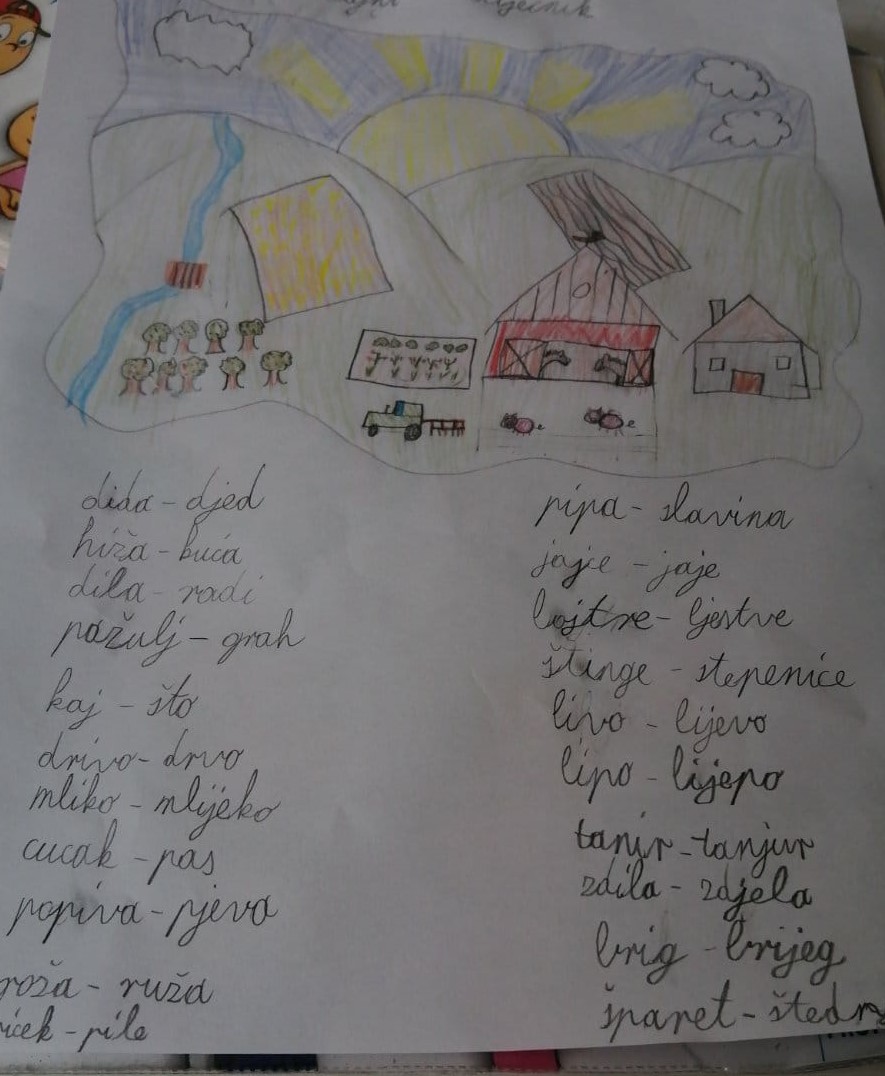 dida - djed
hiža - kuća
dila - radi
pažulj - grah
kaj - što
drivo - drvo
mliko - mlijeko
cucak - pas
popiva - pjeva
roža - ruža
pile
pipa - slavina
jajce - jaje
lojtre - ljestve
štinge - stepenice
livo - lijevo
lipo - lijepo
tanir - tanjur
zdila - zdjela
brig - brijeg
šparet -